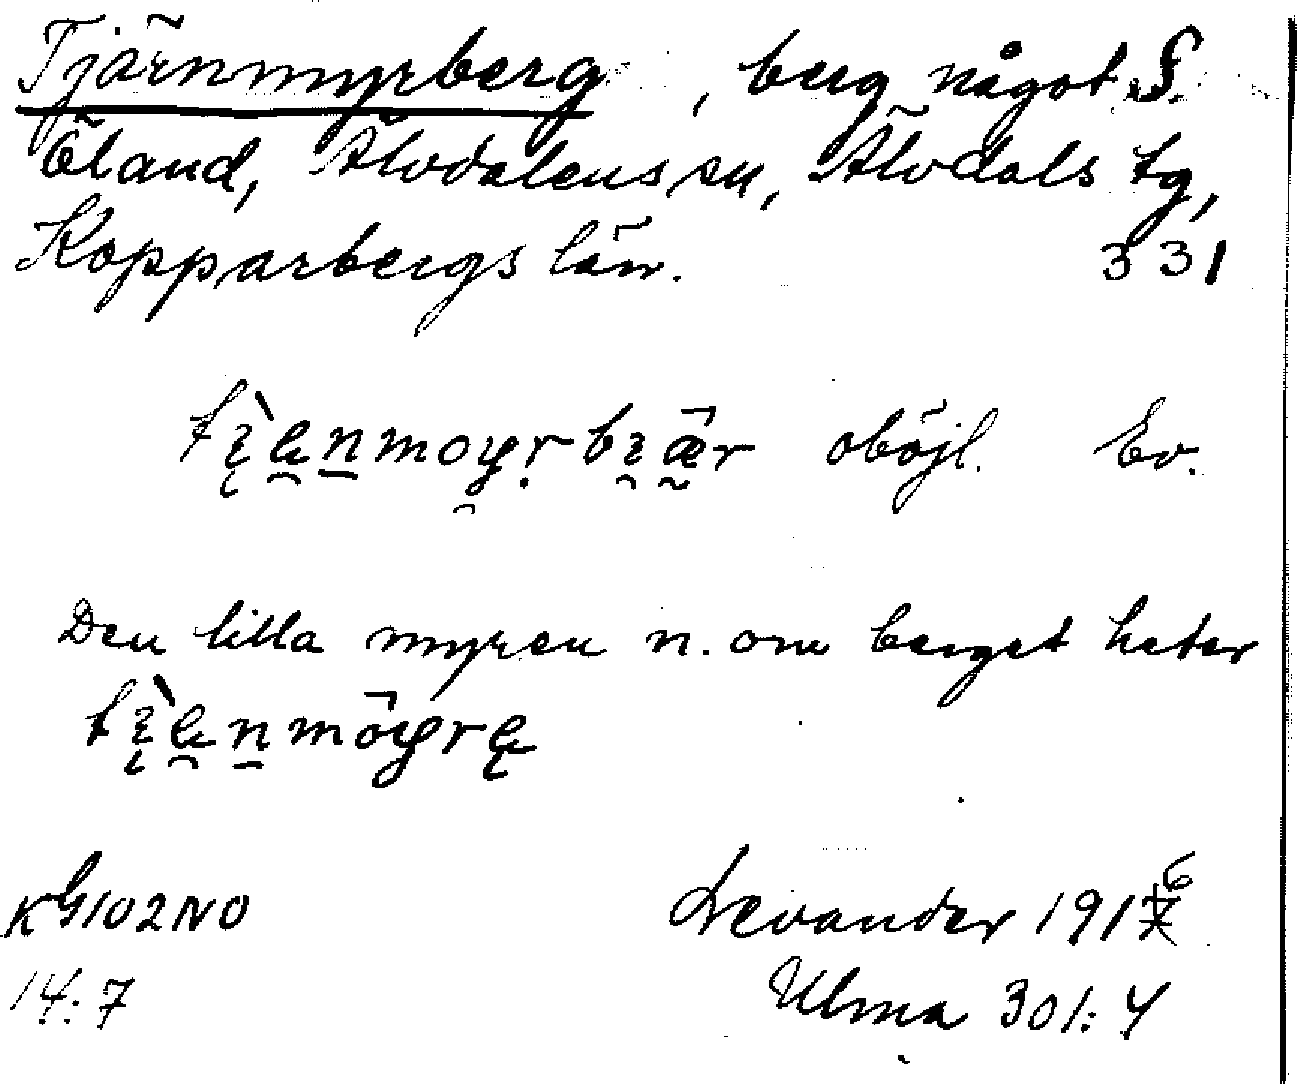 Tjärnmyrberg, berg något S.
Öland, Älvdalens sn, Älvdals tg,
Kopparbergs län. 331
oböjl. Ev.
Den lilla myren n. om berget heter
KG102NO Levander 1916
14:7 Ulma 301:4